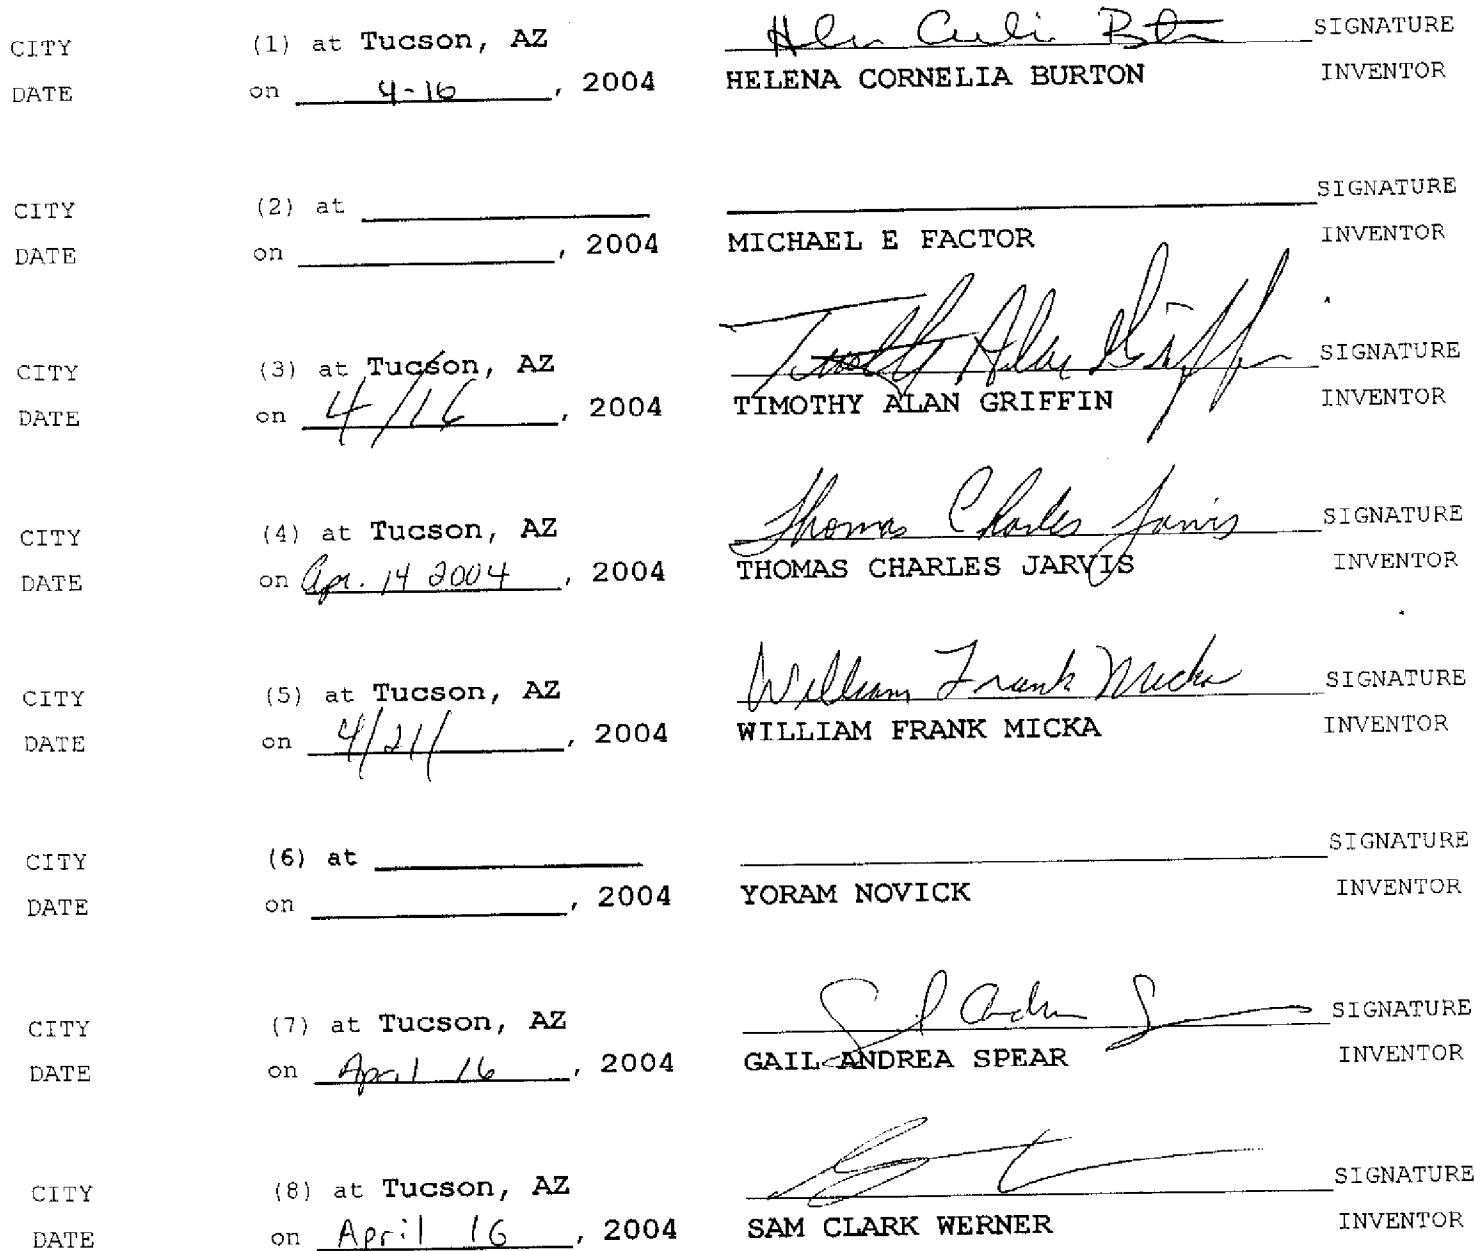 CITY (1) at Tucson, AZ Helen Cornelia Burton SIGNATURE
DATE on 4-16, 2004 HELENA CORNELIA BURTON INVENTOR
CITY (2) at SIGNATURE
DATE on , 2004 MICHAEL E FACTOR INVENTOR
CITY (3) at Tucson, AZ Timothy Alan Griffin SIGNATURE
DATE on 4/16, 2004 TIMOTHY ALAN GRIFFIN INVENTOR
CITY (4) at Tucson, AZ Thomas Charles Jarvis SIGNATURE
DATE on Apr. 14 2004, 2004 THOMAS CHARLES JARVIS INVENTOR
CITY (5) at Tucson, AZ William Frank Micka SIGNATURE
DATE on 4/21/, 2004 WILLIAM FRANK MICKA INVENTOR
CITY (6) at SIGNATURE
DATE on , 2004 YORAM NOVICK INVENTOR
CITY (7) at Tucson, AZ SIGNATURE
DATE on April 16, 2004 GAIL ANDREA SPEAR INVENTOR
CITY (8) at Tucson, AZ SIGNATURE
DATE on April 16, 2004 SAM CLARK WERNER INVENTOR